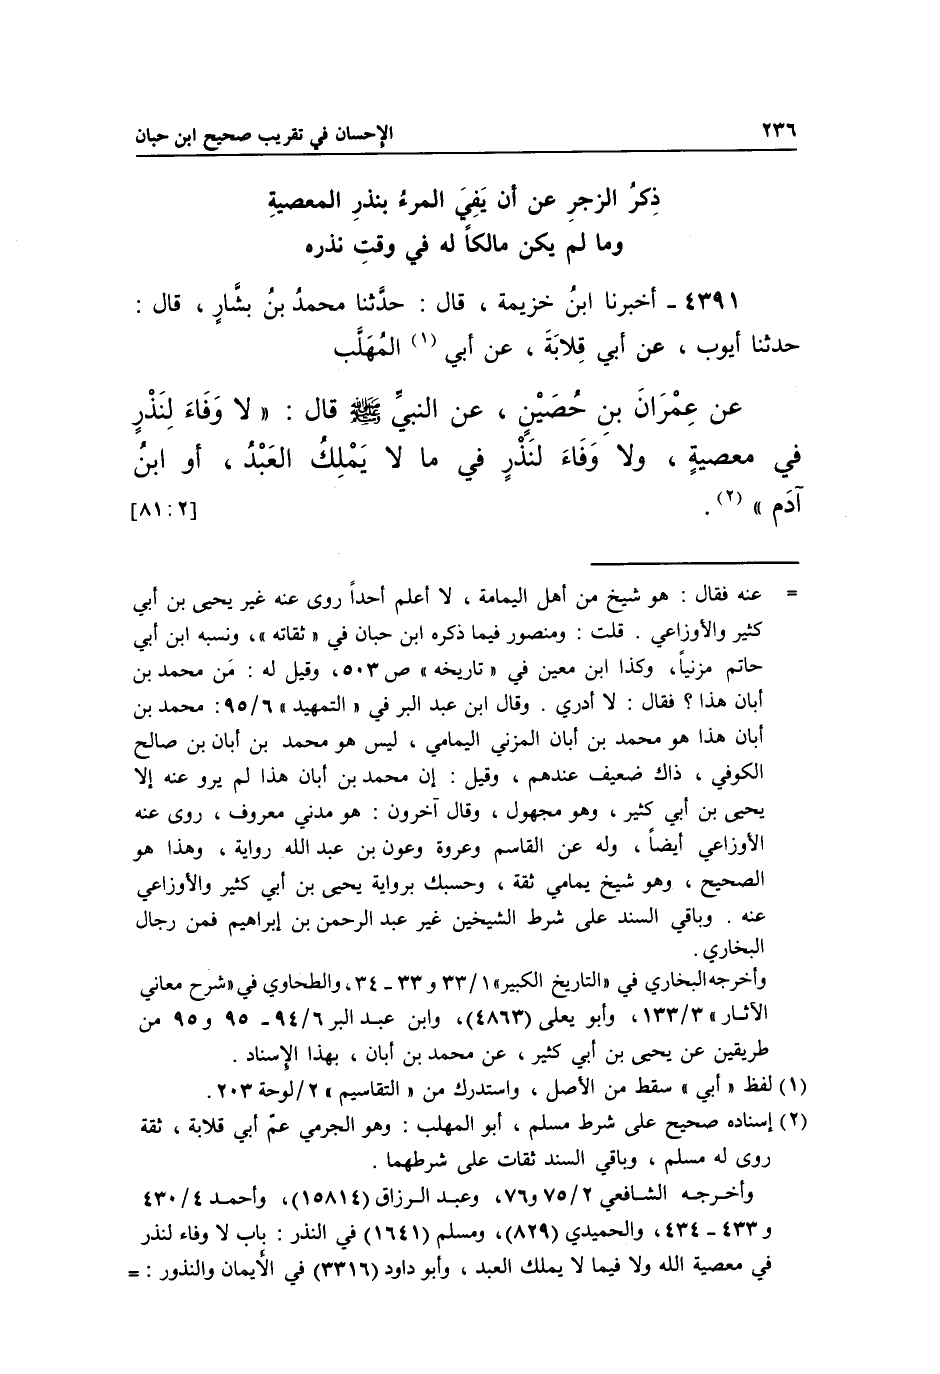 ٢٣٦ الإحسان في تقريب صحيح ابن حبان
ذِكرُ الزجرِ عن أن يَفِيَ المرءُ بنذرِ المعصيةِ
وما لم يكن مالكاً له في وقتِ نذره
٤٣٩١ ـ أخبرنا ابنُ خزيمة ، قال : حدَّثنا محمدُ بنُ بشَّارٍ ، قال :
حدثنا أيوب ، عن أبي قِلابَةَ ، عن أبي (١) المُهَلَّب
عن عِمْرَانَ بنِ حُصَيْنٍ ، عن النبيِّ ﷺ قال : « لا وَفَاءَ لِنَذْرٍ
في معصيةٍ ، ولا وَفَاءَ لنَذْرٍ في ما لا يَمْلِكُ العَبْدُ ، أو ابنُ
آدَم » (٢) . [٢ : ٨١]
= عنه فقال : هو شيخ من أهل اليمامة ، لا أعلم أحداً روى عنه غير يحيى بن أبي
كثير والأوزاعي . قلت : ومنصور فيما ذكره ابن حبان في « ثقاته »، ونسبه ابن أبي
حاتم مزنياً، وكذا ابن معين في « تاريخه » ص ٥٠٣، وقيل له : مَن محمد بن
أبان هذا ؟ فقال : لا أدري . وقال ابن عبد البر في « التمهيد » ٩٥/٦: محمد بن
أبان هذا هو محمد بن أبان المزني اليمامي ، ليس هو محمد بن أبان بن صالح
الكوفي ، ذاك ضعيف عندهم ، وقيل : إن محمد بن أبان هذا لم يرو عنه إلا
يحيى بن أبي كثير ، وهو مجهول ، وقال آخرون : هو مدني معروف ، روى عنه
الأوزاعي أيضاً ، وله عن القاسم وعروة وعون بن عبد الله رواية ، وهذا هو
الصحيح ، وهو شيخ يمامي ثقة ، وحسبك برواية يحيى بن أبي كثير والأوزاعي
عنه . وباقي السند على شرط الشيخين غير عبد الرحمن بن إبراهيم فمن رجال
البخاري .
وأخرجه البخاري في «التاريخ الكبير» ٣٣/١ و ٣٣ ـ ٣٤، والطحاوي في «شرح معاني
الآثار» ١٣٣/٣، وأبو يعلى (٤٨٦٣)، وابن عبد البر ٩٤/٦ ـ ٩٥ و ٩٥ من
طريقين عن يحيى بن أبي كثير ، عن محمد بن أبان ، بهذا الإسناد .
(١) لفظ « أبي » سقط من الأصل ، واستدرك من « التقاسيم » ٢/لوحة ٢٠٣.
(٢) إسناده صحيح على شرط مسلم ، أبو المهلب : وهو الجرمي عمّ أبي قلابة ، ثقة
روى له مسلم ، وباقي السند ثقات على شرطهما .
وأخرجه الشافعي ٧٥/٢ و٧٦، وعبد الرزاق (١٥٨١٤)، وأحمد ٤٣٠/٤
و ٤٣٣ ـ ٤٣٤، والحميدي (٨٢٩)، ومسلم (١٦٤١) في النذر : باب لا وفاء لنذر
في معصية الله ولا فيما لا يملك العبد ، وأبو داود (٣٣١٦) في الأيمان والنذور : =